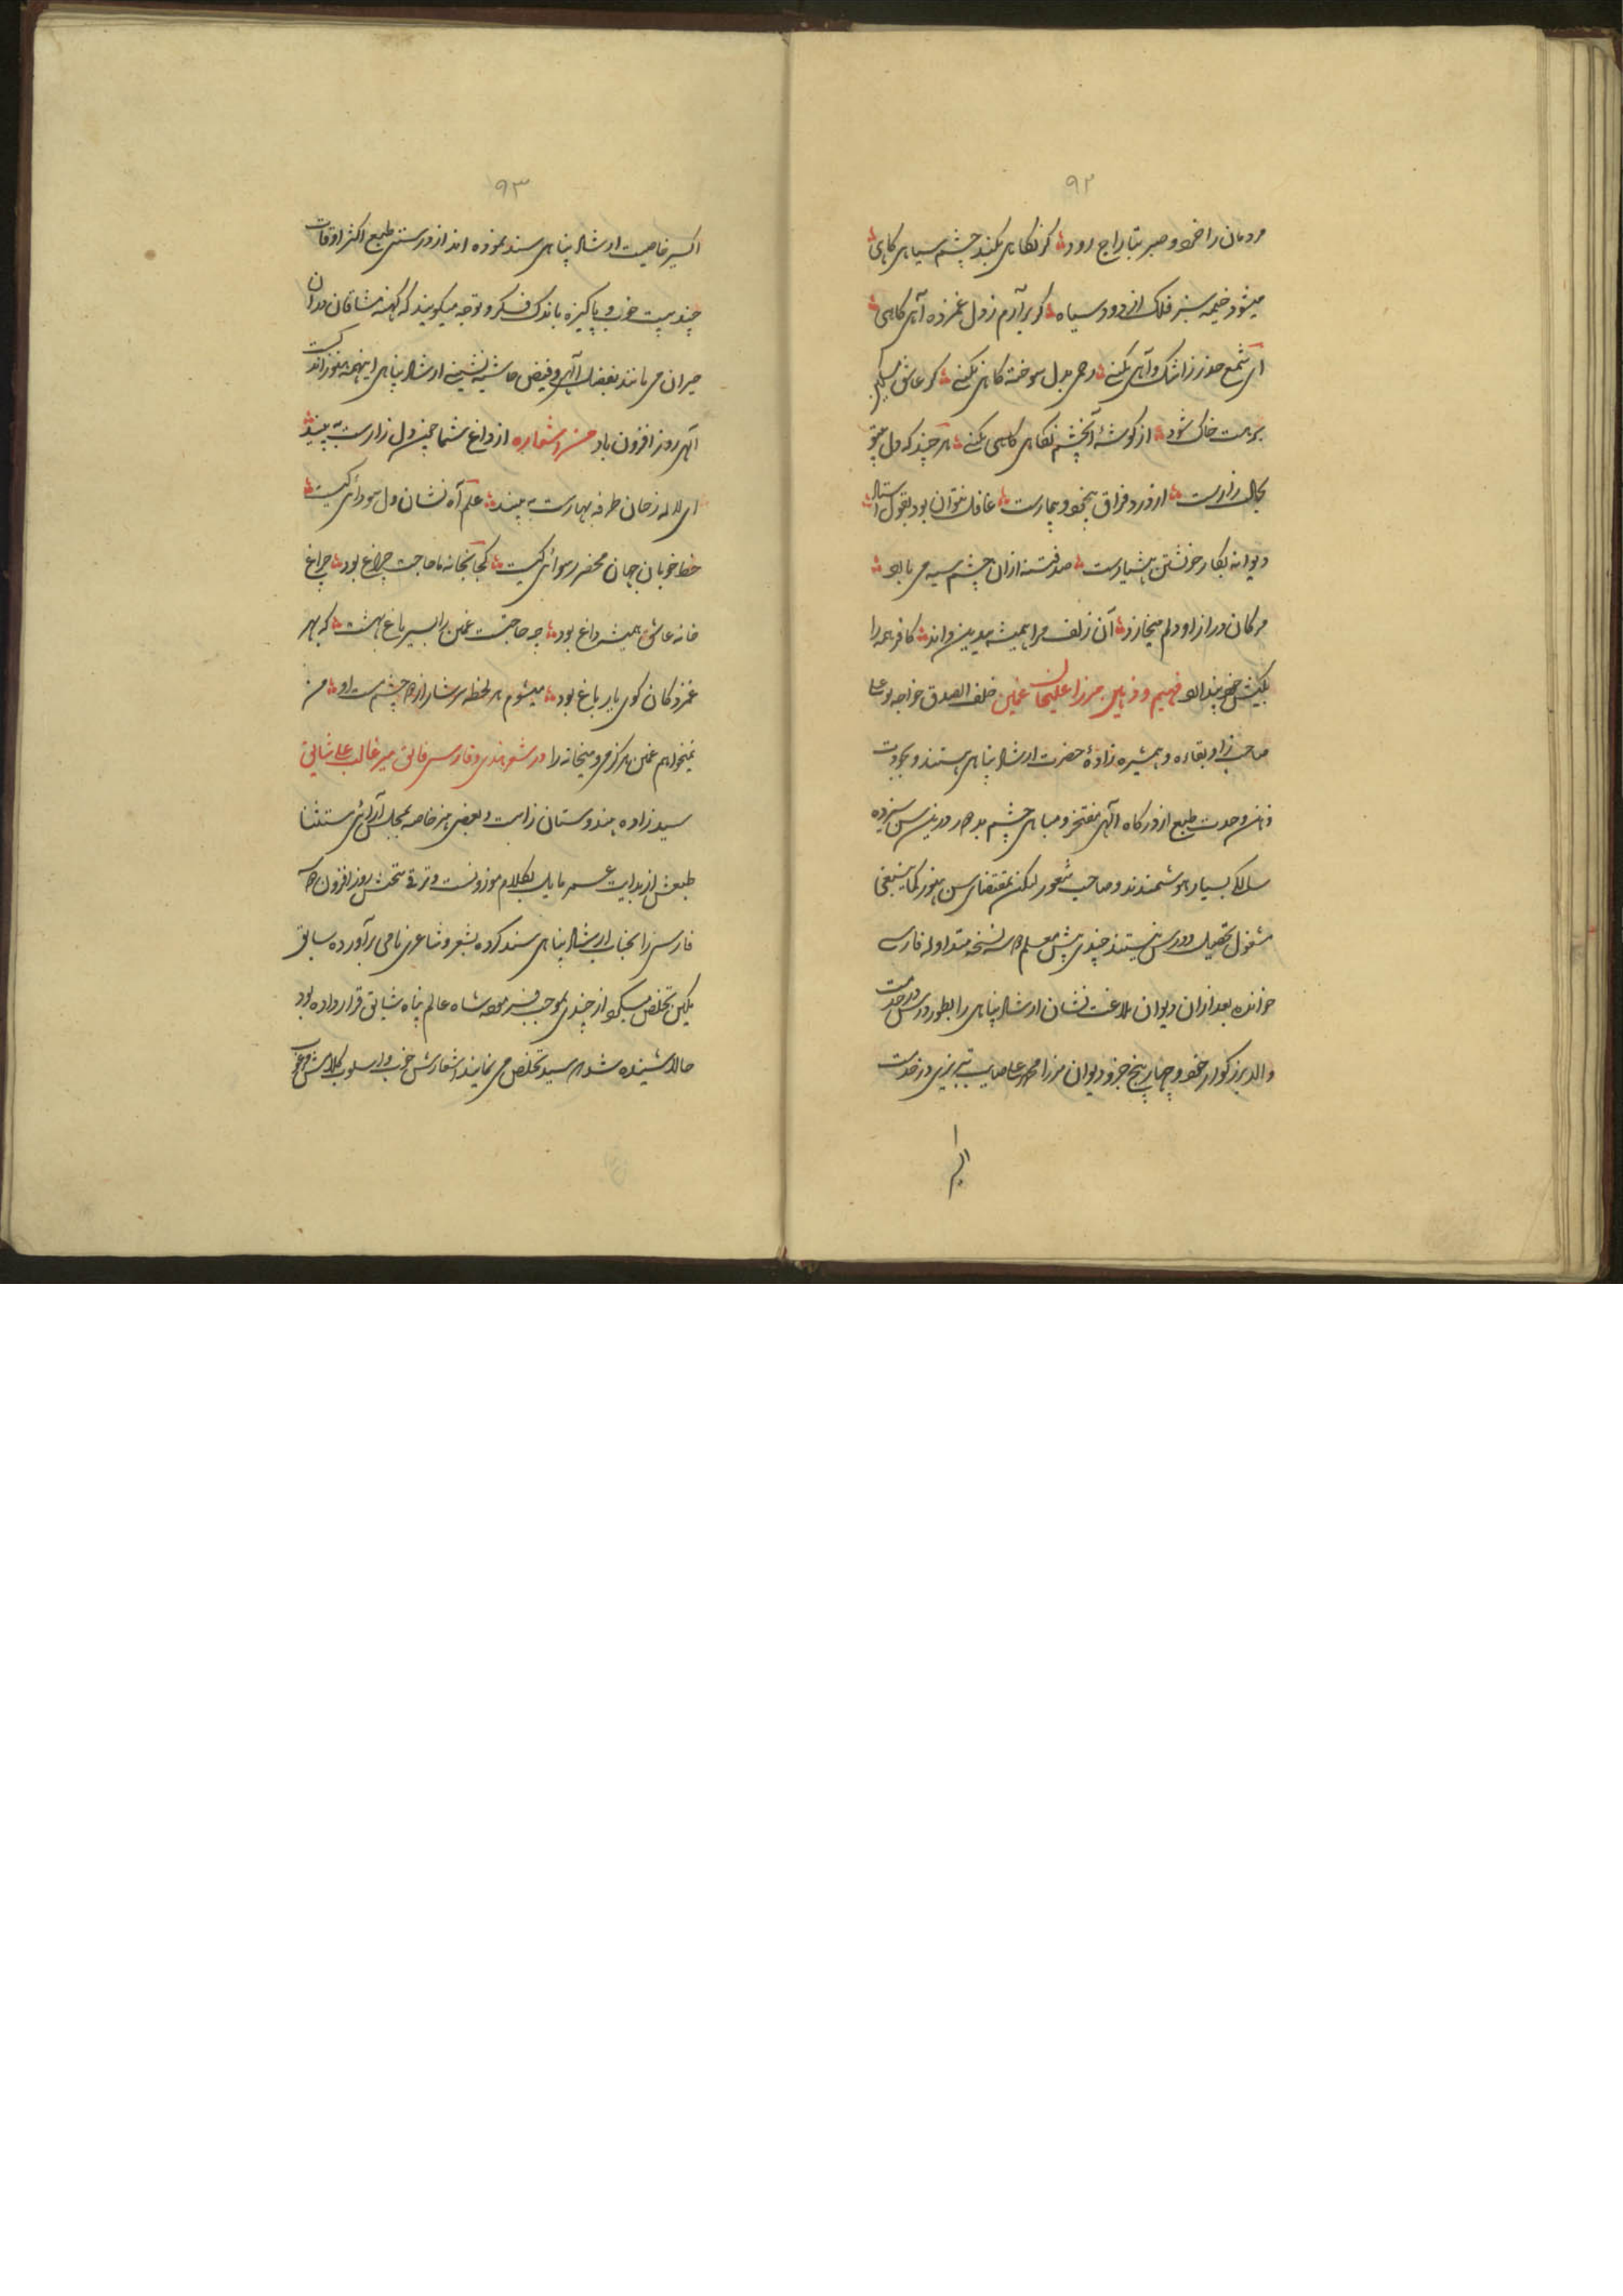 ۹۲
مردمان را خرد و صبر بتاراج رود گر نگاهی بکند چشم سیاهی گاهی
میشود خیمه سبز فلک از دود سیاه گر برآرم ز دل غمزده آهی گاهی
ای شمع حذر ز اشک و آهی نکنی رحمی بدل سوخته گاهی نکنی گر عاشق مسکین
برهت خاک شود از گوشهٔ آنچشم نگاهی گاهی نکنی هر چند که دل
بحال زارست از درد فراق بیخود و بیمارست غافل نتوان بود بقول استاد
دیوانه بکار خویشتن هشیارست صد فتنه ازان چشم سیه می بارد
مژگان دراز او دلم میخارد آن زلف مرا همیشه بیدین داند کافر همه را
بکیش خود پندارد فهیم و ذهین مرزا علیخان غمین خلف الصدق خواجه بوعلی
صاحب زاد بقاءه و همشیره زادهٔ حضرت ارشاد پناهی هستند و بجودت
ذهن وحدت طبع از درگاه الهی مفتخر و مباهی چشم بد دور درین سن سیزده
سالگی بسیار هوشمندند و صاحب شعور لیکن بمقتضای سن هنوز کما ینبغی
مشغول تحصیل و درس نیستند چندی پیش معلم سه نسخه متداوله فارسی
خوانده بعد ازان دیوان بلاغت نشان ارشاد پناهی را بطور درس در خدمت
والد بزرگوار خود و چهار پنج جزو دیوان مرزا محمد علی صایب تبریزی در خدمت
۹۳
اکسیر خاصیت ارشاد پناهی سند نموده اند از درستی طبع اکثر اوقات
چند بیت خوب و پاکیزه باندک فکر و توجه میگویند که کهنه مشاقان
حیران می مانند بفضل الهی و فیض حاشیه نشینی ارشاد پناهی اینهمه هنوز اندک است
الهی روز افزون باد من اشعاره از داغ شما چمن دل زارست ببینید
ای لاله رخان طرفه بهارست ببینید علم آه نشان دل سودائی کیست
خط خوبان جهان محضر رسوائی کیست کجا بخانه ما حاجت چراغ بود چراغ
خانه عاشق همیشه داغ بود چه حاجتست غمین را بسیر باغ بهشت که بهر
غمزدگان کوی یار باغ بود میشوم هر لحظه سرشار از چشم مست او من
نمیخواهم غمین هرگز می و میخانه را در شعر هندی و فارسی فائق میر غالب علی شایق
سید زاده هندوستان زاست و بعضی هنر خاصه مجلس آرائی مستثنا
طبعش از بدایت عمر مایل بکلام موزونست و ترقی سخنش روز افزون
فارسی را بجناب ارشاد پناهی سند کرده بشعر و شاعری نامی برآورده سابق
تخلص میکرد از چندی بموجب فرموده شاه عالم پناه شایق قرار داده بود
حالا شنیده شد سید تخلص می نمایند اشعارش خوب و اسلوب کلامش مرغوب